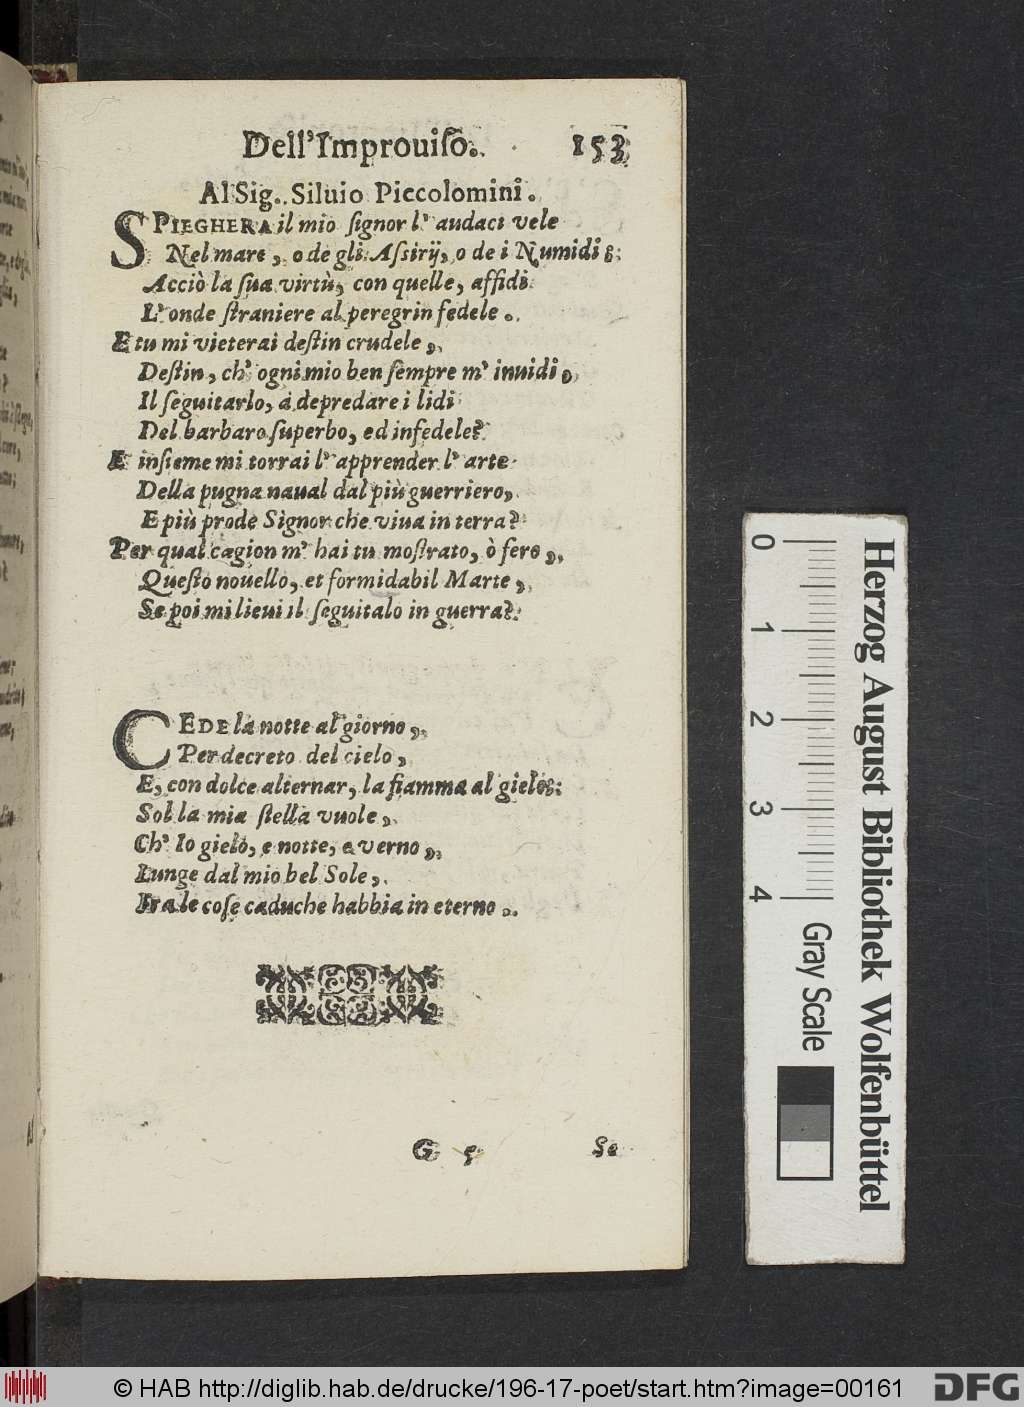 Dell'Improuiſo. 153
Al Sig. Siluio Piccolomini.
SPIEGHERA il mio ſignor l' audaci vele
Nel mare, o de gli Aſsirij, o de i Numidi;
Acciò la ſua virtù, con quelle, affidi
L' onde ſtraniere al peregrin fedele.
E tu mi vieterai deſtin crudele,
Deſtin, ch' ogni mio ben ſempre m' inuidi,
Il ſeguitarlo, à depredare i lidi
Del barbaro ſuperbo, ed infedele?
E inſieme mi torrai l' apprender l' arte
Della pugna naual dal più guerriero,
E più prode Signor che viua in terra?
Per qual cagion m' hai tu moſtrato, ò fero,
Queſto nouello, et formidabil Marte,
Se poi mi lieui il ſeguitalo in guerra?
CEDE la notte al giorno,
Per decreto del cielo,
E, con dolce alternar, la fiamma al gielo:
Sol la mia ſtella vuole,
Ch' Io gielo, e notte, e verno,
Lunge dal mio bel Sole,
Fra le coſe caduche habbia in eterno.
G 5 Se
Herzog August Bibliothek Wolfenbüttel
0 1 2 3 4
Gray Scale
© HAB http://diglib.hab.de/drucke/196-17-poet/start.htm?image=00161
DFG